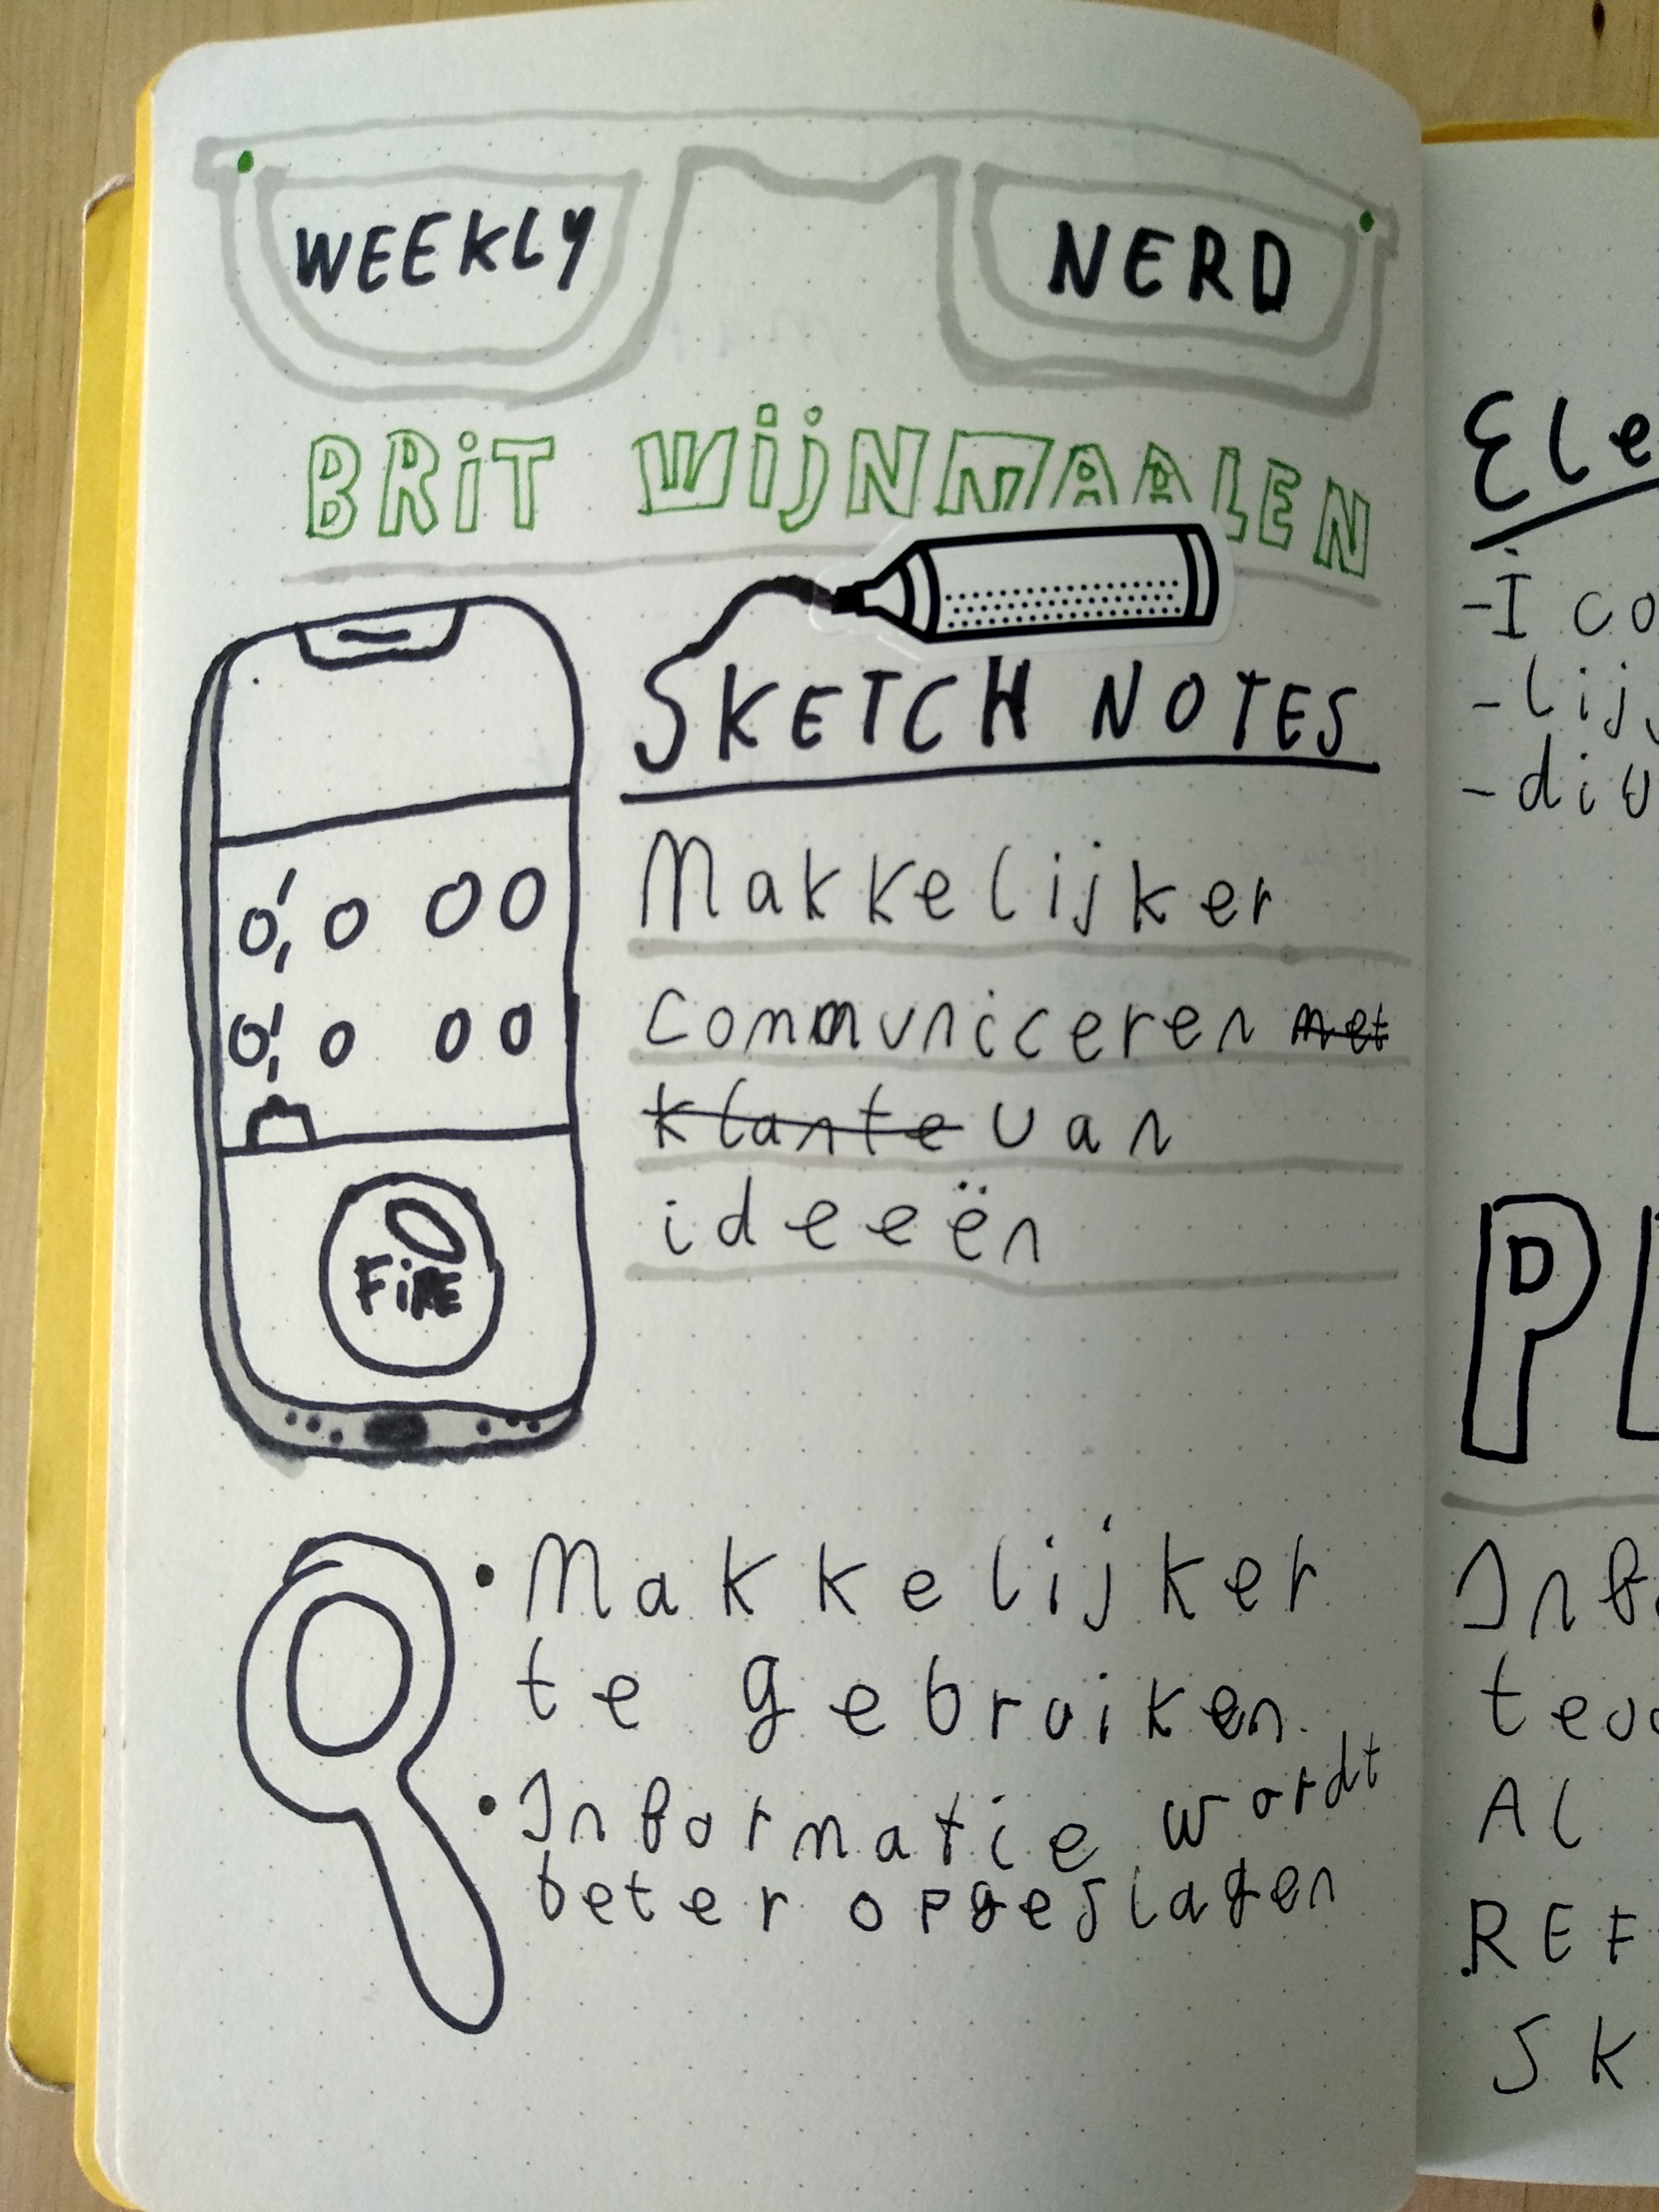 WEEKLY NERD
BRiT WijNMAALEN
SKETCH NOTES
Makkelijker
communiceren met
klante van
ideeën
FiRE
• Makkelijker
te gebruiken
• Informatie wordt
beter opgeslagen
Ele
- I co
- lij
- div
P
Inf
AL
REF
SK